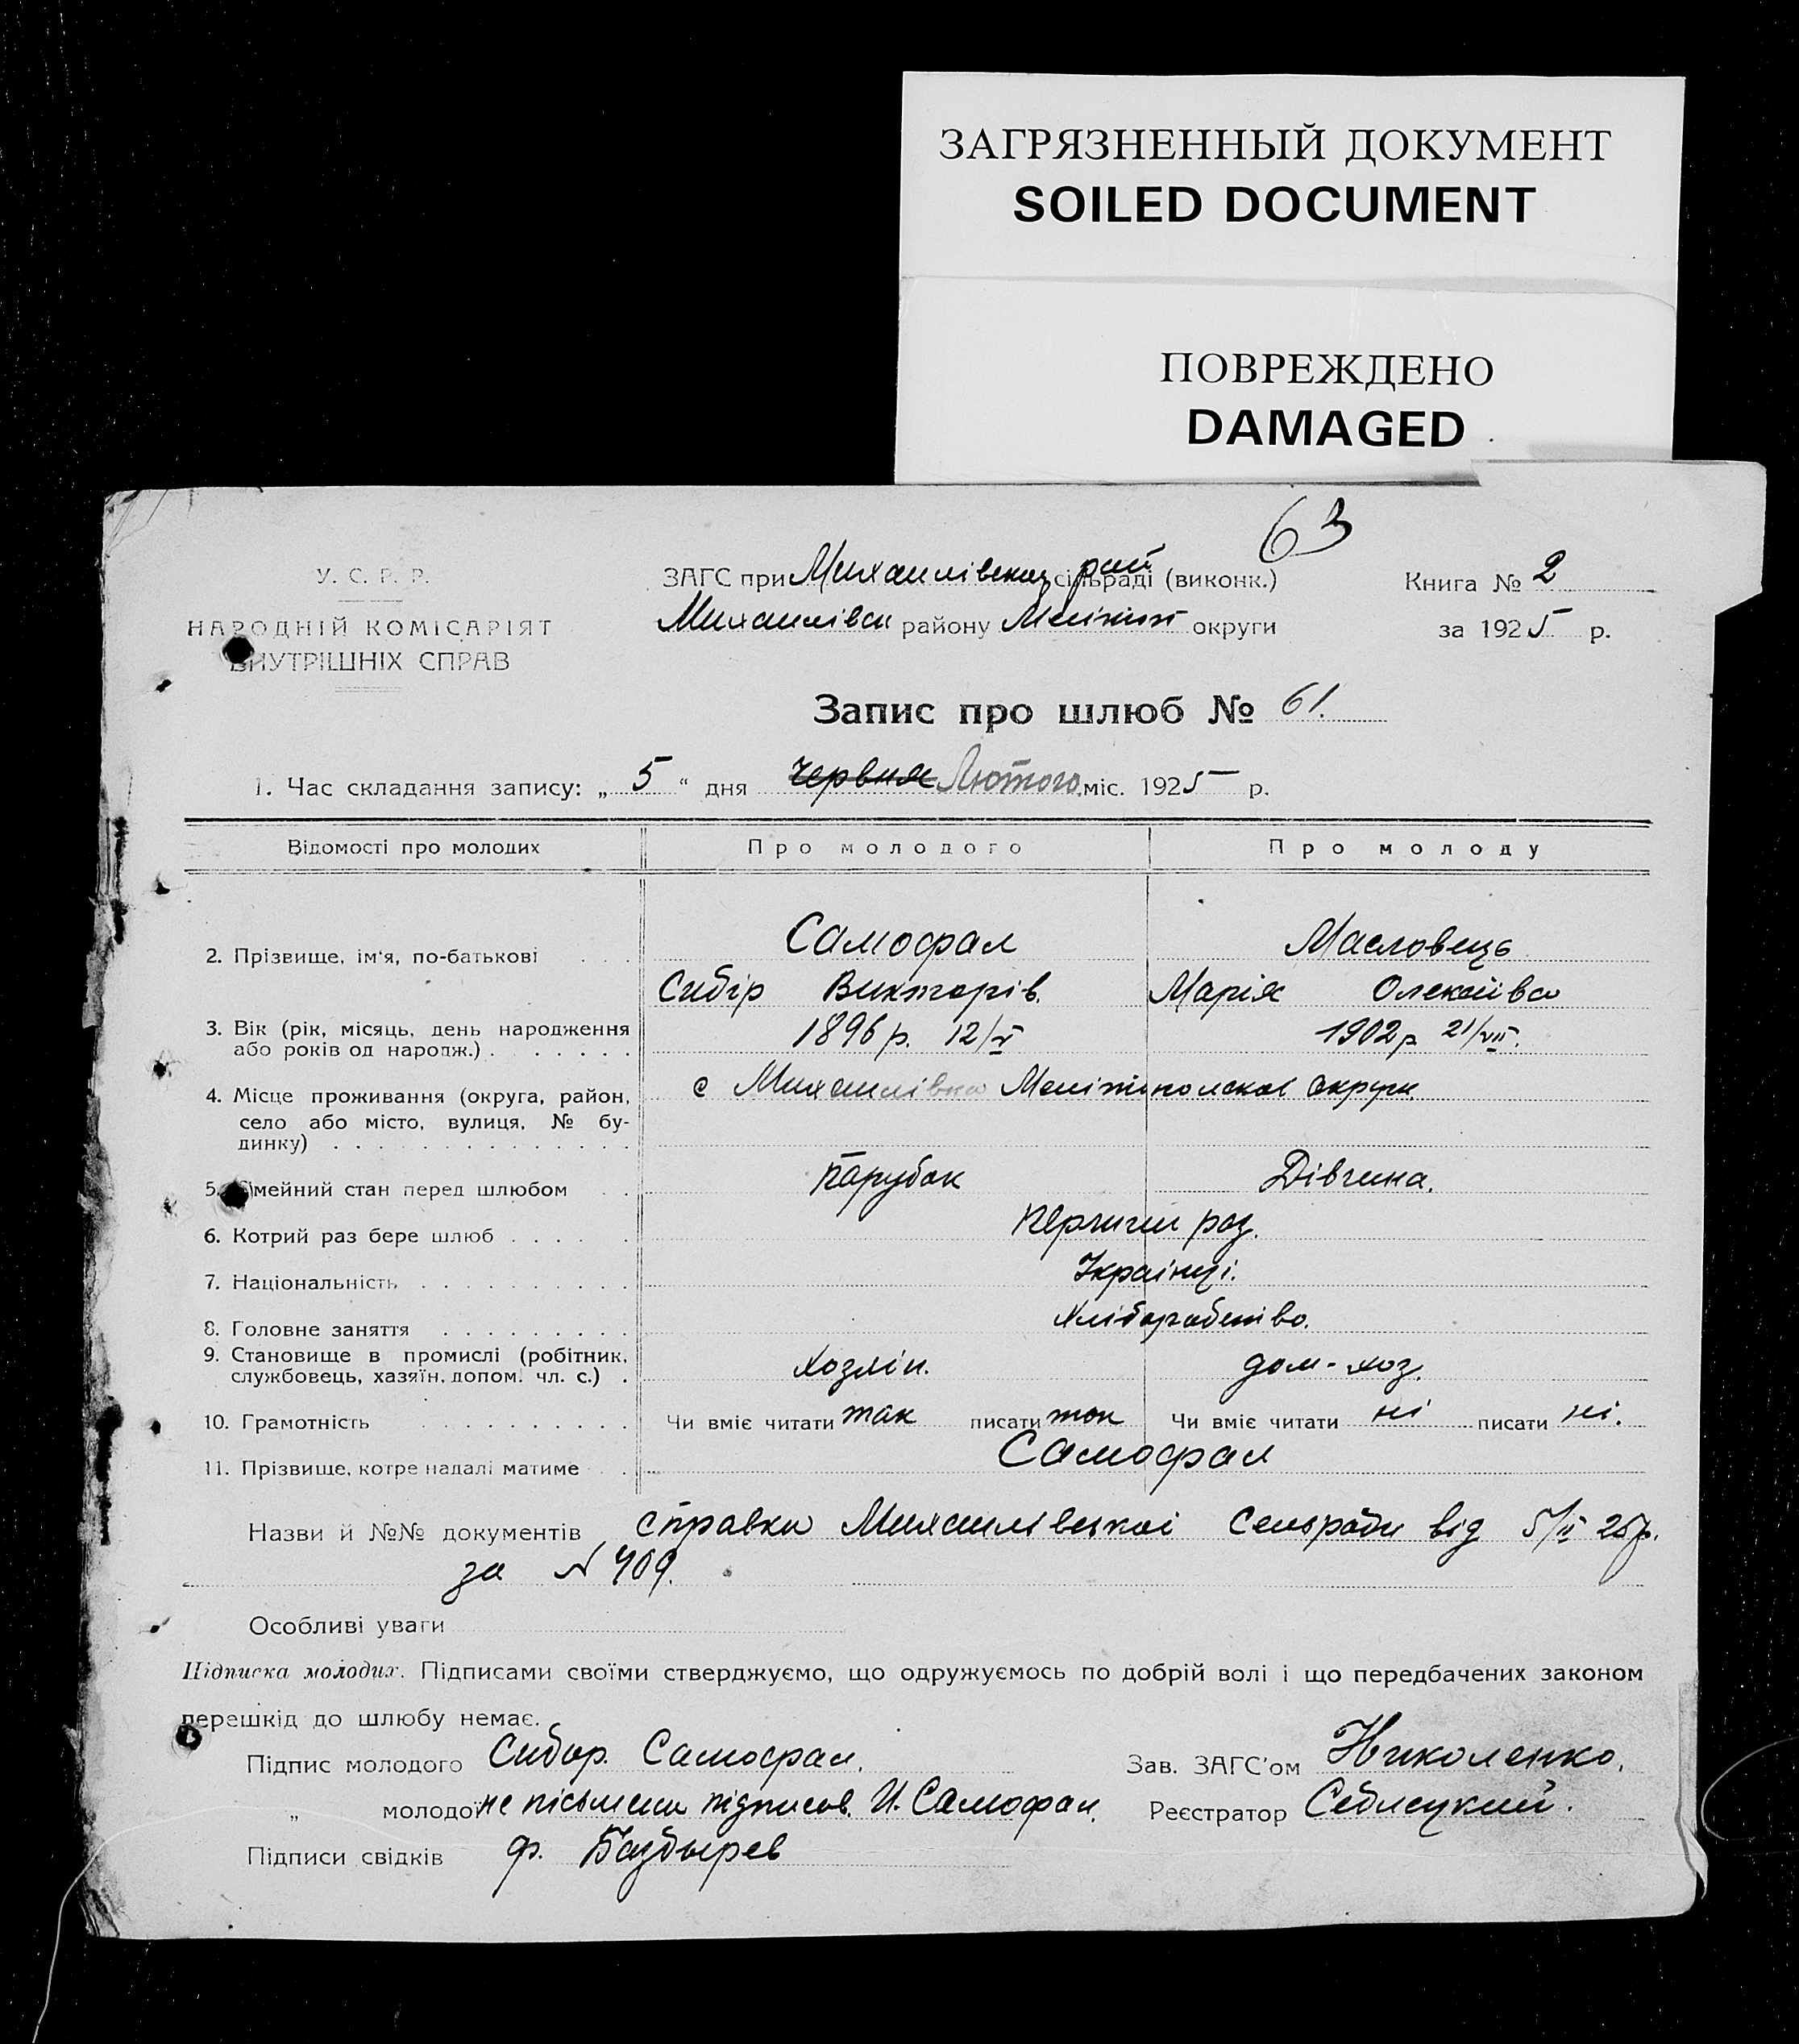 ЗАГРЯЗНЕННЫЙ ДОКУМЕНТ
SOILED DOCUMENT
ПОВРЕЖДЕНО
DAMAGED
63
У. С. Р. Р.
НАРОДНІЙ КОМІСАРІЯТ
ВНУТРІШНІХ СПРАВ
ЗАГС при Михаилівськ рай сільраді (виконк.)
Михаилівськ району Меліт округи
Книга № 2
за 1925 р.
Запис про шлюб № 61.
1. Час складання запису: „ 5 “ дня червня Лютого міс. 1925 р.
Відомості про молодих Про молодого Про молоду
2. Прізвище, ім'я, по-батькові . . . Самофал Масловець
Сибір Викторів. Марія Олексіївна
3. Вік (рік, місяць, день народження
або років од народж.) . . . . . . . 1896 р. 12/V 1902 р 21/VII.
4. Місце проживання (округа, район, с Михаилівка Мелітіполскоі округи
село або місто, вулиця, № бу-
динку) . . . . . . . . . . . . . .
5. Сімейний стан перед шлюбом . . Парубок Дівчина.
6. Котрий раз бере шлюб . . . . . Перший раз.
7. Національність . . . . . . . . . . Украінці.
8. Головне заняття . . . . . . . . . Хліборобство.
9. Становище в промислі (робітник,
службовець, хазяїн, допом. чл. с.) . Хозяін. дом-хоз.
10. Грамотність . . . . . . . . . . Чи вміє читати так писати так Чи вміє читати ні писати ні.
11. Прізвище, котре надалі матиме . . Самофал
Назви й №№ документів справка Михаилівськоі Сельради від 5/II 25 р.
за № 409.
Особливі уваги
Підписка молодих. Підписами своїми стверджуємо, що одружуємось по добрій волі і що передбачених законом
перешкід до шлюбу немає.
Підпис молодого Сибір. Самофал. Зав. ЗАГС'ом Николенко.
„ молодої не пісьмена підписав. И. Самофал. Реєстратор
Підписи свідків Ф. Баздырев